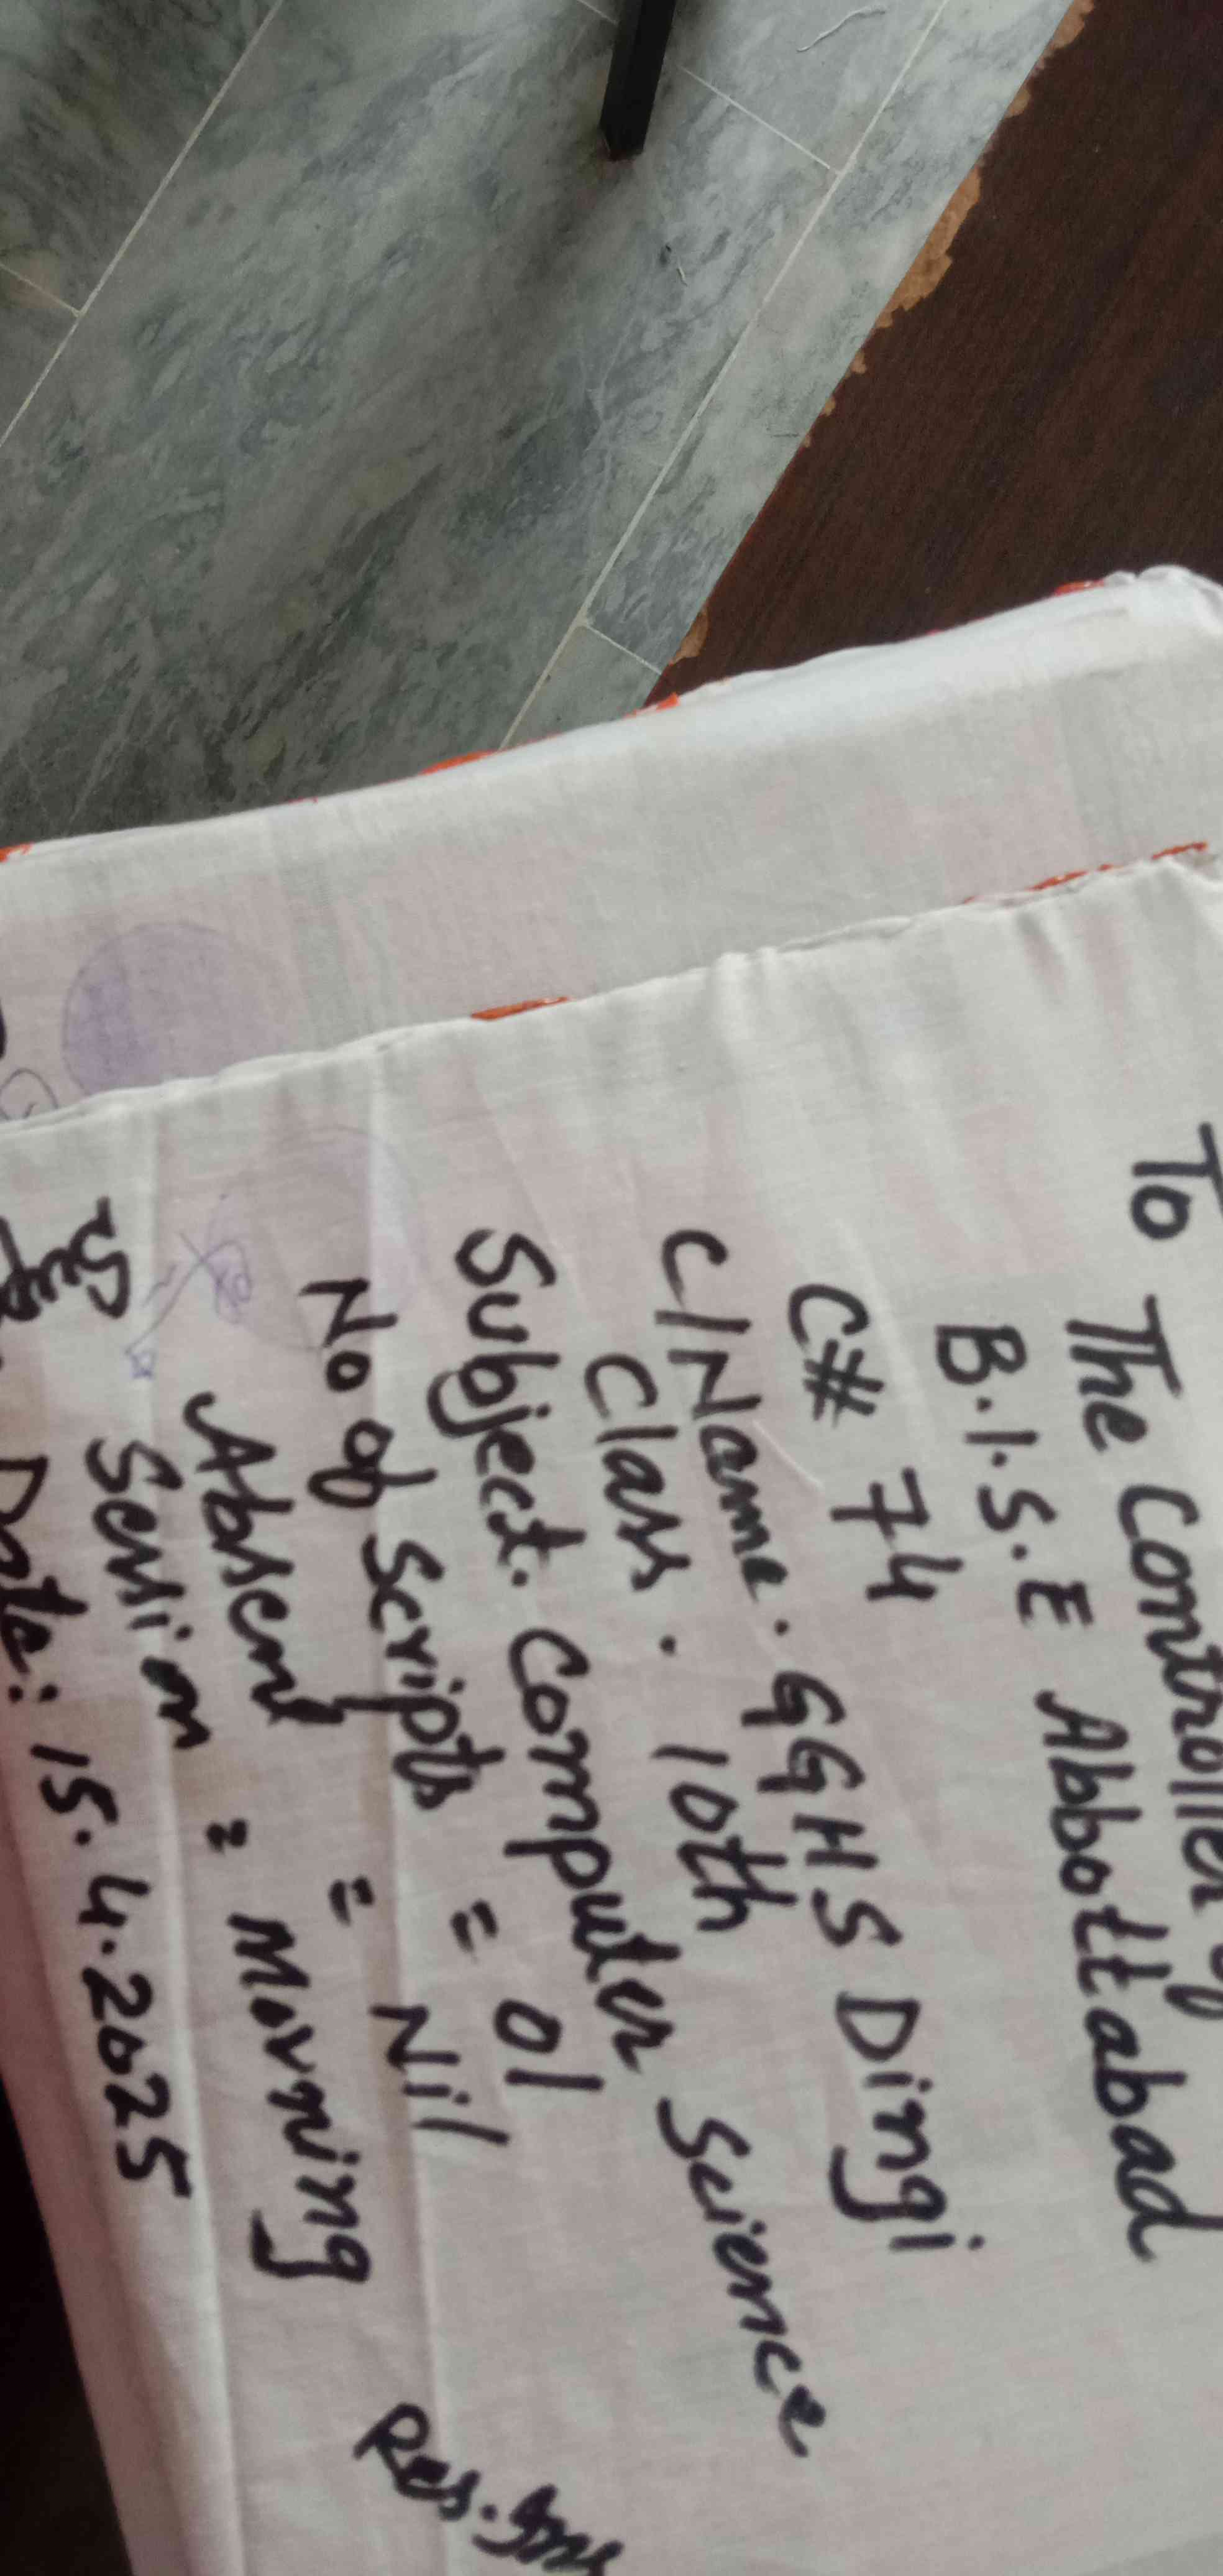 To The Controller of
B.I.S.E Abbottabad
C# 74
C/Name. GGHS Dingi
Class. 10th
Subject. Computer Science
No of Scripts = 01
Absent = Nil
Session = Morning
Date: 15.4.2025